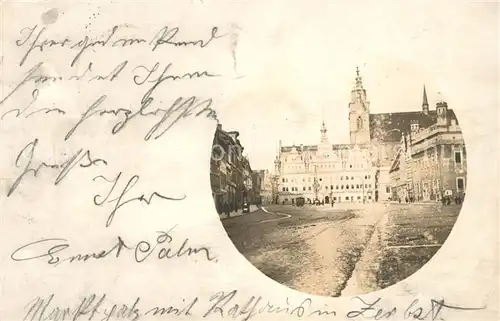 Ihrer gedenkend
sendet Ihnen
die herzlichsten
Grüsse
Ihr
Ernst Palm.
Marktplatz mit Rathaus in Zerbst.